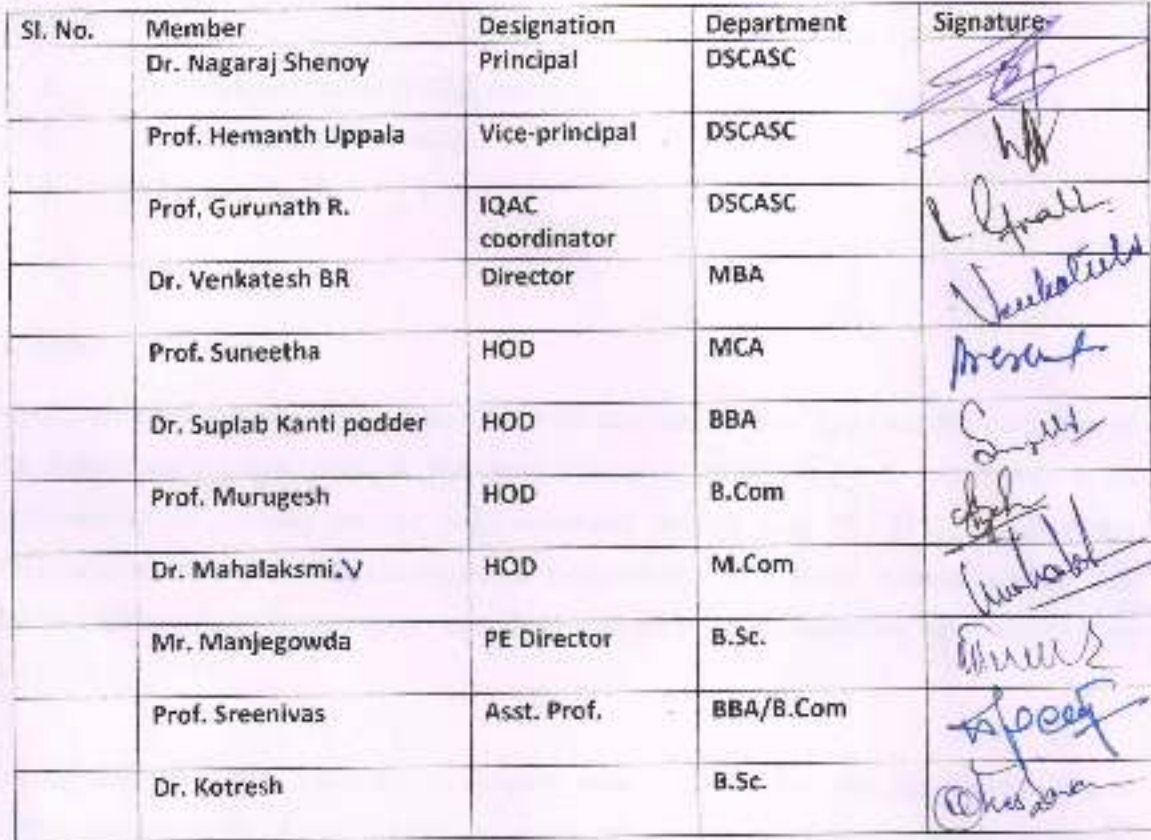 Sl. No. Member Designation Department Signature
Dr. Nagaraj Shenoy Principal DSCASC
Prof. Hemanth Uppala Vice-principal DSCASC
Prof. Gurunath R. IQAC DSCASC
coordinator
Dr. Venkatesh BR Director MBA Venkatesh
Prof. Suneetha HOD MCA
Dr. Suplab Kanti podder HOD BBA
Prof. Murugesh HOD B.Com
Dr. Mahalaksmi.V HOD M.Com
Mr. Manjegowda PE Director B.Sc.
Prof. Sreenivas Asst. Prof. BBA/B.Com
Dr. Kotresh B.Sc.